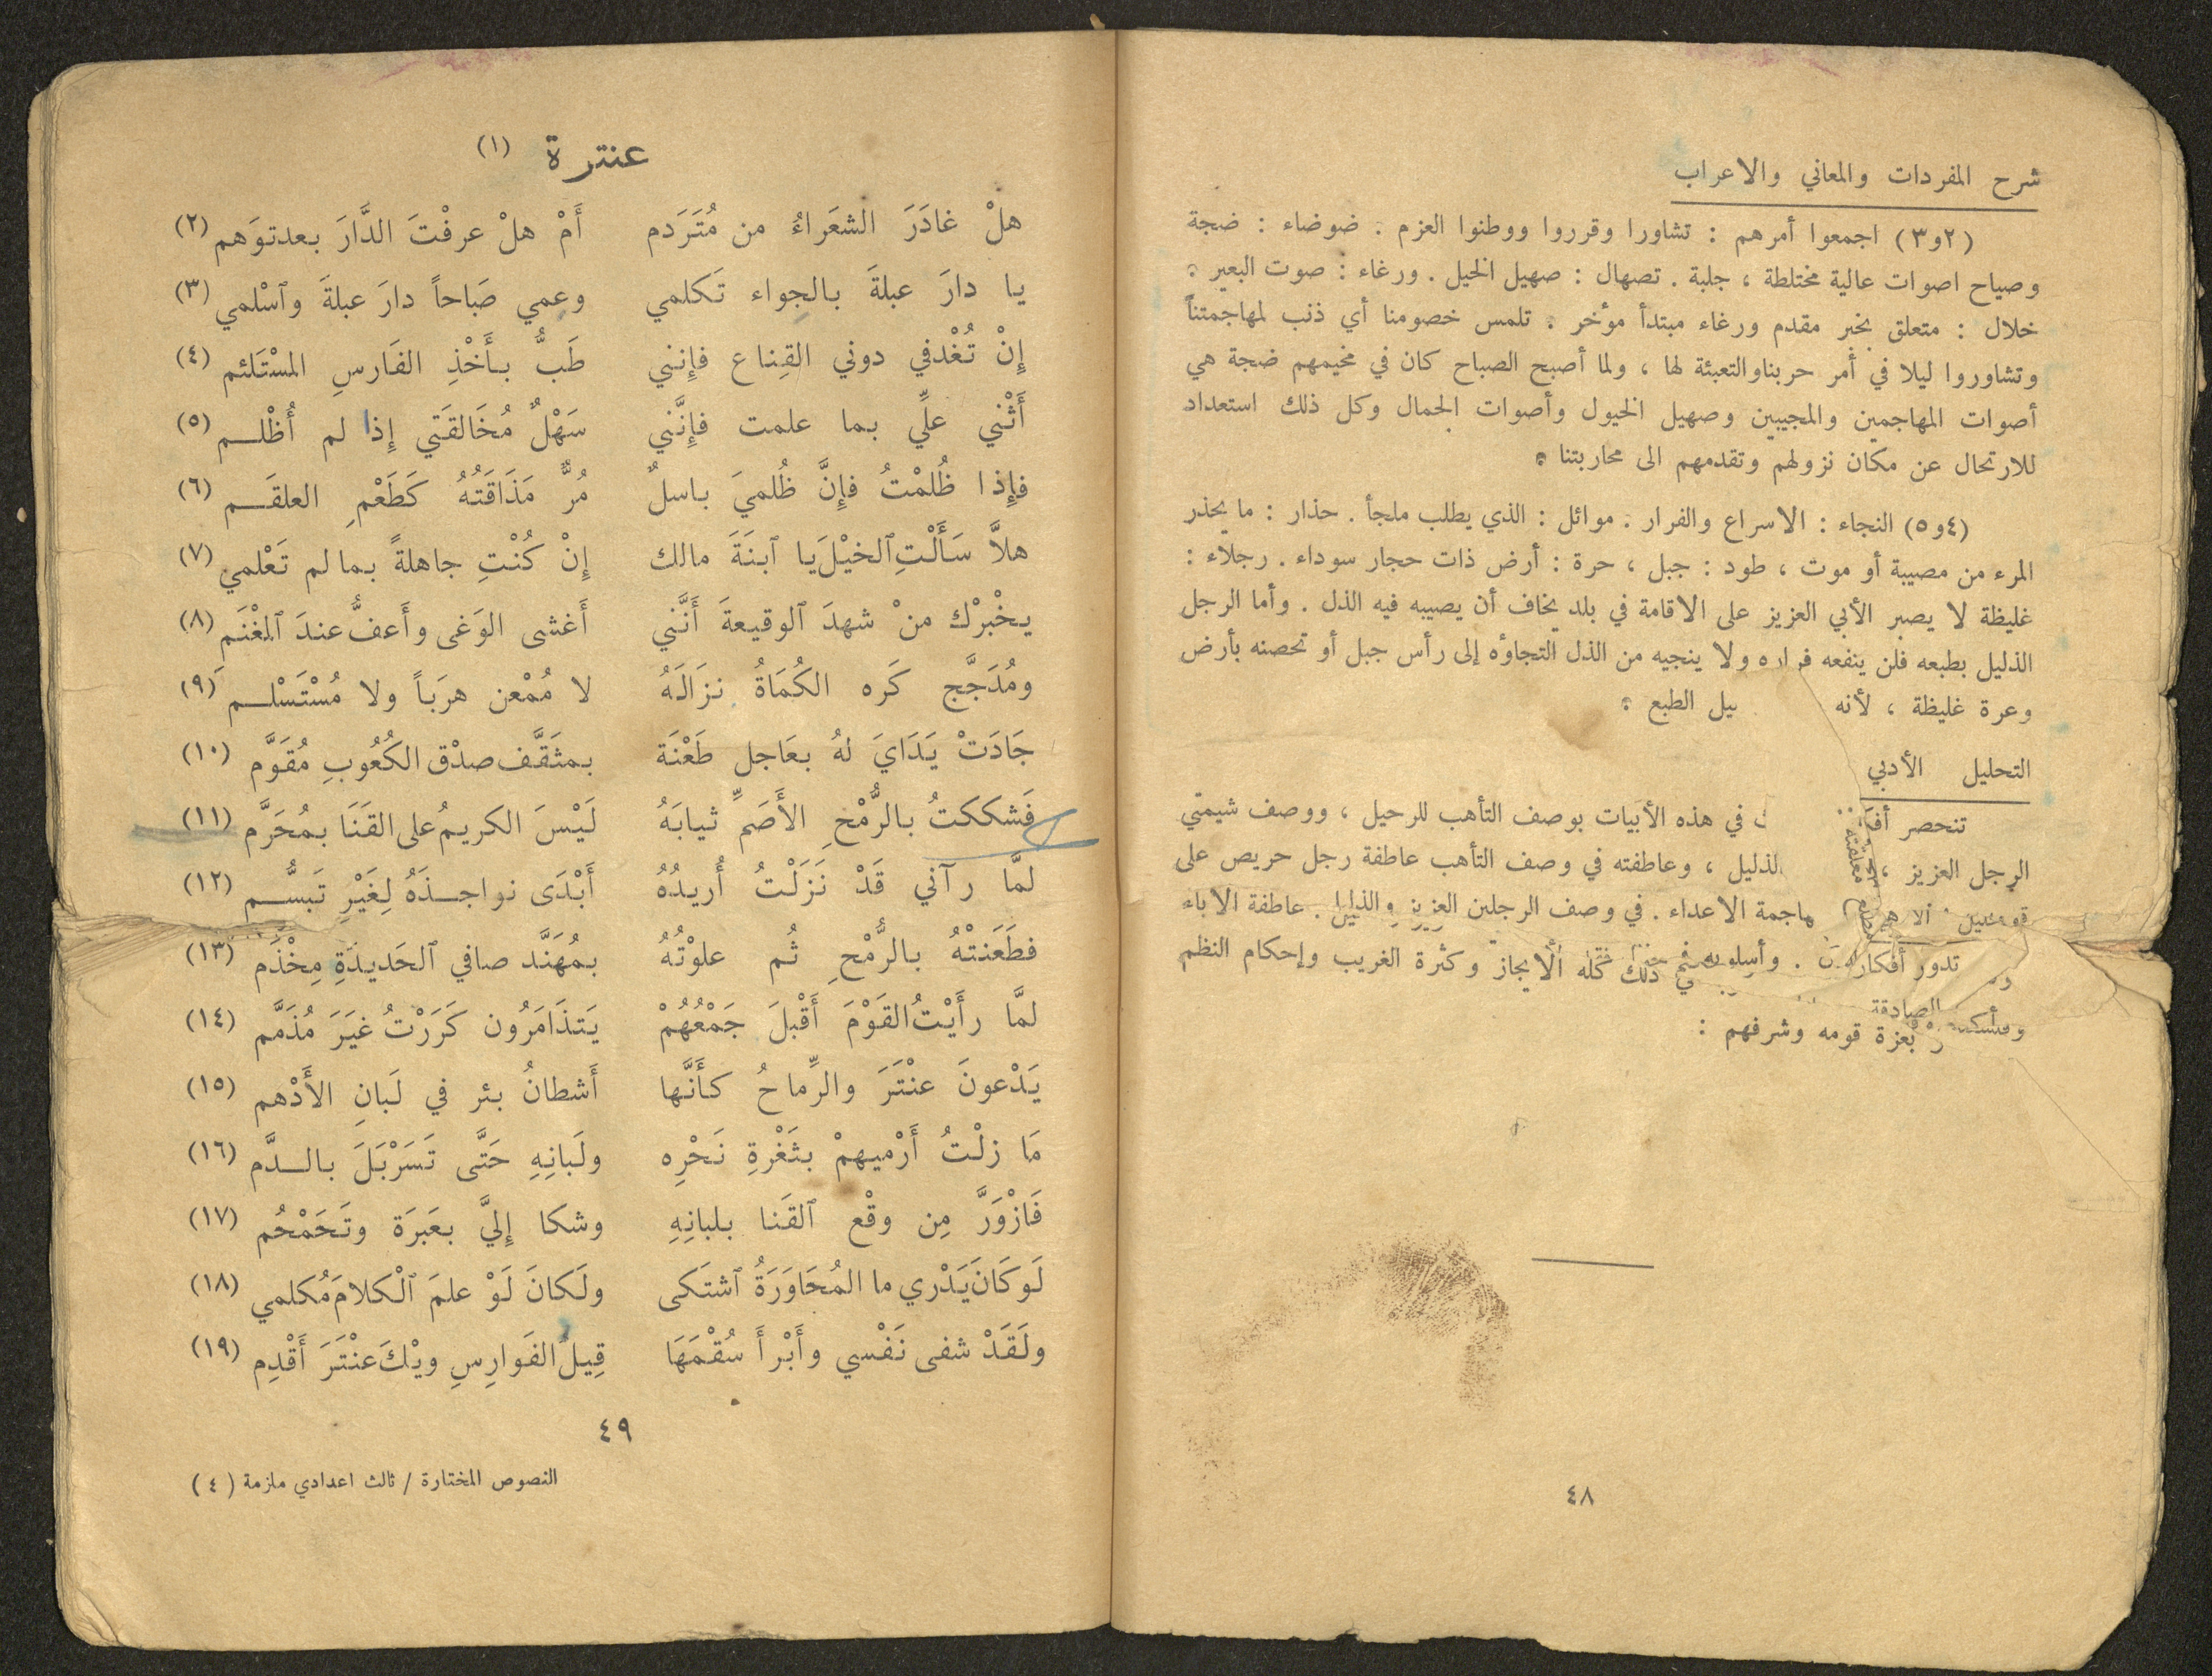 شرح المفردات والمعاني والاعراب
(٢و٣) اجمعوا أمرهم : تشاورا وقرروا ووطنوا العزم . ضوضاء : ضجة
وصياح اصوات عالية مختلطة ، جلبة . تصهال : صهيل الخيل . ورغاء : صوت البعير .
خلال : متعلق بخبر مقدم ورغاء مبتدأ مؤخر . تلمس خصومنا أي ذنب لمهاجمتنا
وتشاوروا ليلا في أمر حربناوالتعبئة لها ، ولما أصبح الصباح كان في مخيمهم ضجة هي
أصوات المهاجمين والمجيبين وصهيل الخيول وأصوات الجمال وكل ذلك استعداد
للارتحال عن مكان نزولهم وتقدمهم الى محاربتنا .
(٤و٥) النجاء : الاسراع والفرار . موائل : الذي يطلب ملجأ . حذار : ما يحذر
المرء من مصيبة أو موت ، طود : جبل ، حرة : أرض ذات حجار سوداء . رجلاء :
غليظة لا يصبر الأبي العزيز على الاقامة في بلد يخاف أن يصيبه فيه الذل . وأما الرجل
الذليل بطبعه فلن ينفعه فراره ولا ينجيه من الذل التجاؤه إلى رأس جبل أو تحصنه بأرض
وعرة غليظة ، لأنه يل الطبع .
التحليل الأدبي
تنحصر في هذه الأبيات بوصف التأهب للرحيل ، ووصف شيمتي
الرجل العزيز ، لذليل ، وعاطفته في وصف التأهب عاطفة رجل حريص على
هاجمة الاعداء . في وصف الرجلين العزيز والذليل . عاطفة الاباء
تدور . وأسلوبه في ذلك كله الايجاز وكثرة الغريب وإحكام النظم
الصادقة
بعزة قومه وشرفهم :
٤٨
عنترة (١)
هلْ غادَرَ الشعَراءُ من مُتَرَدم أَمْ هلْ عرفْتَ الدَّارَ بعدتوَهم (٢)
يا دارَ عبلةَ بالجواء تَكلمي وعمي صَباحاً دارَ عبلةَ وٱسْلمي (٣)
إِنْ تُغْدفي دوني القِناع فإِنني طَبٌّ بأَخْذِ الفَارسِ المسْتَلئم (٤)
أَثْني علَّي بما علمت فإِنَّني سَهْلٌ مُخَالقَتي إِذا لم أُظْلـم (٥)
فإِذا ظُلمْتُ فإِنَّ ظُلميَ باسلٌ مُرٌّ مَذَاقَتُهُ كَطَعْمِ العلقَـم (٦)
هلاَّ سَأَلْتِ ٱلخيْلَ يَا ٱبنَةَ مالك إِنْ كُنْتِ جاهلةً بما لم تَعْلمي (٧)
يخْبرْك منْ شهدَ ٱلوقيعةَ أَنَّني أَغشى الوَغى وأَعفُّ عندَ ٱلمغْنَم (٨)
ومُدَجَّج كَره الكُمَاةُ نزَالَهُ لا مُمْعن هرَباً ولا مُسْتَسْلـم (٩)
جَادَتْ يَدَايَ لهُ بعَاجل طَعْنَة بمثَقَّف صدْق الكُعُوبِ مُقَوَّم (١٠)
فَشككتُ بالرُّمْحِ الأَصَمِّ ثيابَهُ لَيْسَ الكريمُ على القَنَا بمُحَرَّم (١١)
لمَّا رآني قَدْ نَزَلْتُ أُريدُهُ أَبْدَى نواجـذَهُ لِغَيْرِ تَبسُّـم (١٢)
فطَعَنتْهُ بالرُّمْحِ ثُم علوْتُهُ بمُهَنَّد صافي ٱلحَديدَةِ مِخْذَم (١٣)
لمَّا رأَيْتُ القَوْمَ أَقْبلَ جَمْعُهُمْ يَتذَامَرُون كَرَرْتُ غيَرَ مُذَمَّم (١٤)
يَدْعونَ عنْتَرَ والرِّماحُ كأَنَّها أَشطانُ بئر في لَبانِ الأَدْهم (١٥)
مَا زلْتُ أَرْميهمْ بثَغْرةِ نَحْرِه ولَبانِهِ حَتَّى تَسَرْبَلَ بالـدَّم (١٦)
فَازْوَرَّ مِن وقْع ٱلقَنا بلبانِهِ وشكا إِليَّ بعَبرَة وتَحَمْحُم (١٧)
لَو كَانَ يَدْري ما المُحَاوَرَةُ ٱشتَكى ولَكانَ لَوْ علمَ ٱلْكلامَ مُكلمي (١٨)
ولَقَدْ شفى نَفْسي وأَبْرأَ سُقْمَهَا قِيلُ الفَوارِسِ ويْكَ عنْتَرَ أَقْدِم (١٩)
٤٩
النصوص المختارة / ثالث اعدادي ملزمة (٤)